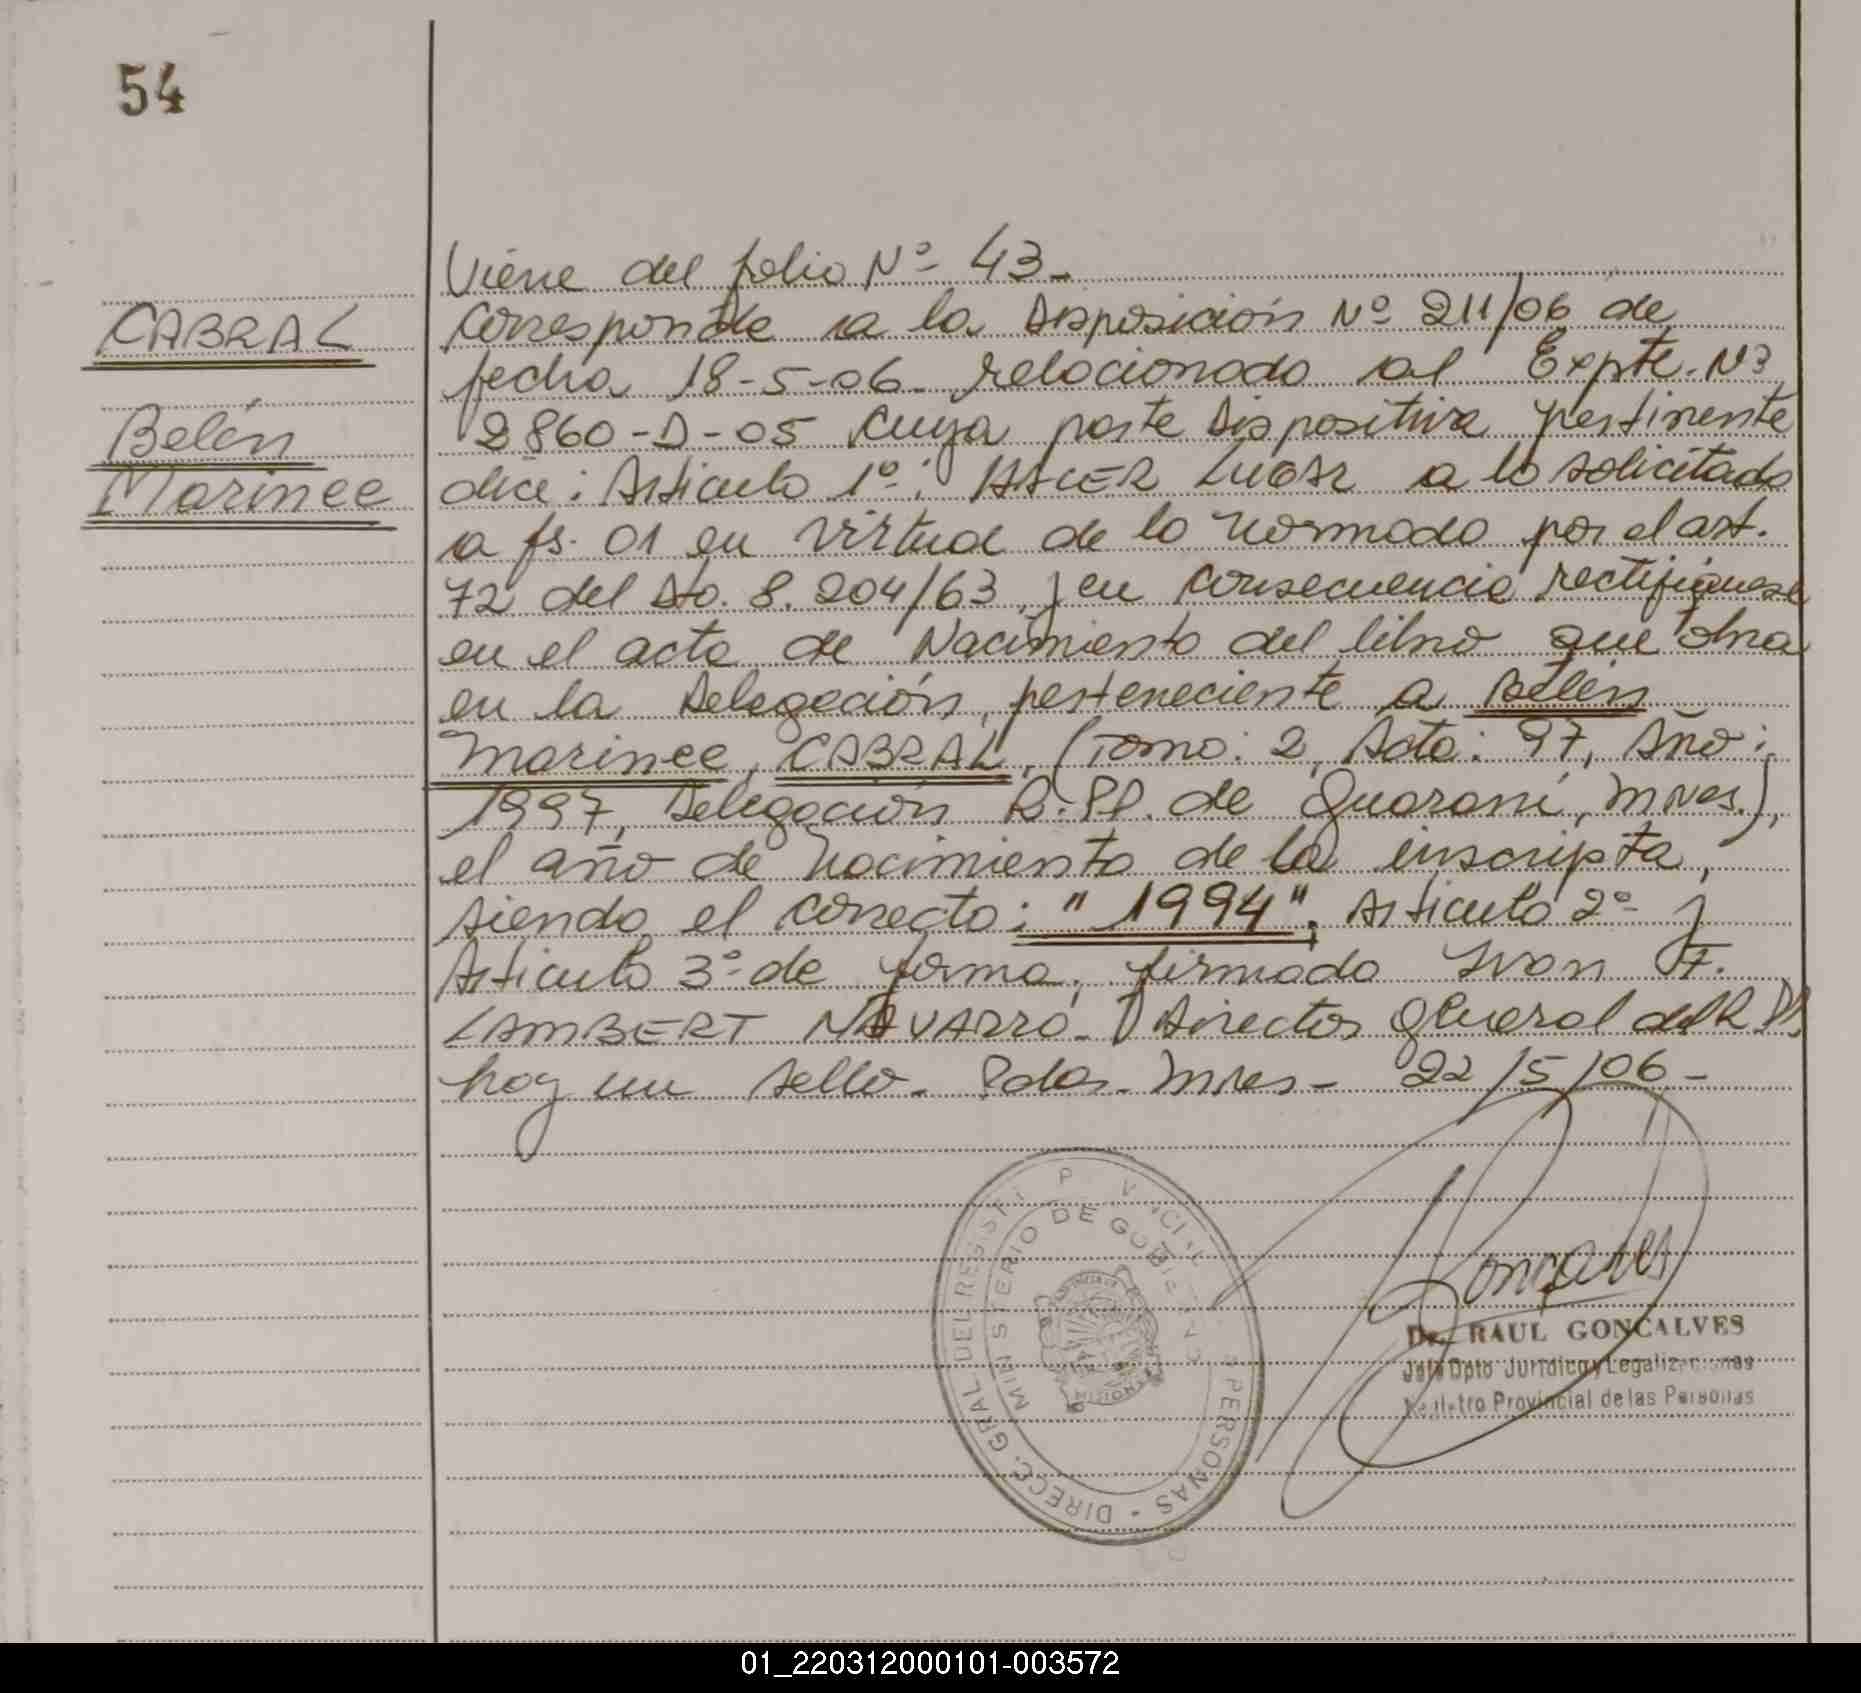 54
CABRAL
Belén
Marinee
Viene del folio Nº 43-
Corresponde a la Disposición Nº 211/06 de
fecha 18-5-06. relacionado al Expte. Nº
2860-D-05 cuya parte Dispositiva pertinente
dice: Articulo 1º: HACER LUGAR a lo solicitado
a fs. 01 en virtud de lo normado por el art.
72 del Dto. 8.204/63, y en consecuencia rectifiquese
en el acta de Nacimiento del libro que obra
en la Delegación, perteneciente a Belén
Marinee, CABRAL, (Tomo: 2, Acta: 97, Año:
1997, Delegación R.PP. de Guaraní, Mnes.),
el año de nacimiento de la inscripta,
siendo el correcto: "1994". Articulo 2º y
Articulo 3º de forma, firmado Ivan F.
LAMBERT NAVARRO- Director General del R.PP.
hay un sello. Pdas. Mnes- 22/5/06-
DIRECC. GRAL DEL REGISTR P V NCIAL PERSONAS -
MINISTERIO DE GOBIERNO
Goncalves
Dr. RAUL GONCALVES
Jefe Dpto Jurídico y Legalizaciones
Registro Provincial de las Personas
01_220312000101-003572